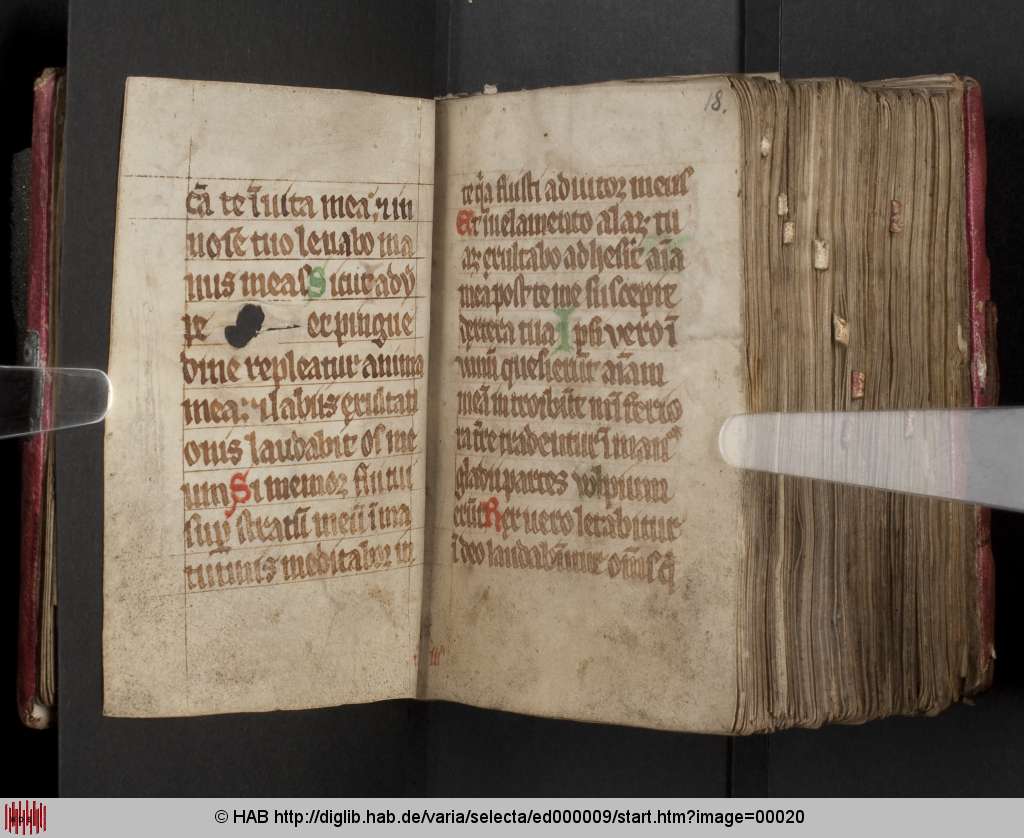 cā te ī uita mea ⁊ in
noīe tuo leuabo ma
nus meas Sicut ady
pe et pingue
dine repleatur anima
mea ⁊ labiis exultati
onis laudabit os me
um Si memor fui tui
sup stratū meū ī ma
tutinis meditabor in
18.
te q̄a fuisti adiutor meus
Et ī uelamento alaꝝ tu
aꝝ exultabo adhesit aīa
mea post te me suscepit
dextera tua Ipsi vero ī
uanū quesierūt aīam
meā introibūt ī īferio
ra tr̄e tradentur ī man⁹
gladii partes vulpium
erūt Rex uero letabitur
ī deo laudabūtur om̄s q̄
© HAB http://diglib.hab.de/varia/selecta/ed000009/start.htm?image=00020